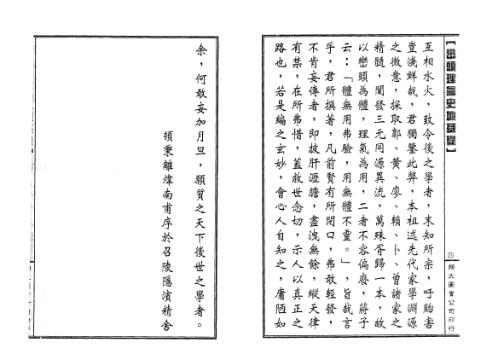 互相水火，致令後之學者，末知所宗，吁貽害
豈淺鮮哉，君獨鑒此弊，本祖述先代家學淵源
之微意，採取郭、黃、廖、賴、卜、曾諸家之
精髓，闡發三元同源異流，萬殊胥歸一本，故
以巒頭為體，理氣為用，二者不容偏廢，蔣子
云：「體無用弗驗，用無體不靈。」，旨哉言
乎，君所撰著，凡前賢有所閉口，弗敢輕發，
不肯妄傳者，即披肝瀝膽，盡洩無餘，縱天律
有禁，在所弗惜，蓋救世念切，示人以真正之
路也，若是編之玄妙，會心人自知之，庸陋如
四 翔大圖書公司印行
余，何敢妄加月旦，願質之天下後世之學者。
頓秉離煒南甫序於召陵隱濱精舍